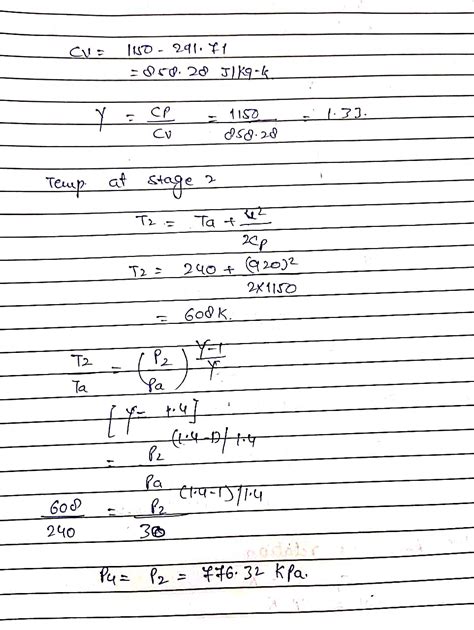 Cv = 1150 - 291.71
= 858.28 J/kg-k
γ = CP/CV = 1150/858.28 = 1.33.
Temp. at stage 2
T2 = Ta + u²/2Cp
T2 = 240 + (920)²/2×1150
= 608K.
T2/Ta = (P2/Pa)^(γ-1/γ)
[γ = 1.4]
= P2/Pa^(1.4-1)/1.4
608/240 = P2/30^(1.4-1)/1.4
P4 = P2 = 776.32 KPa.